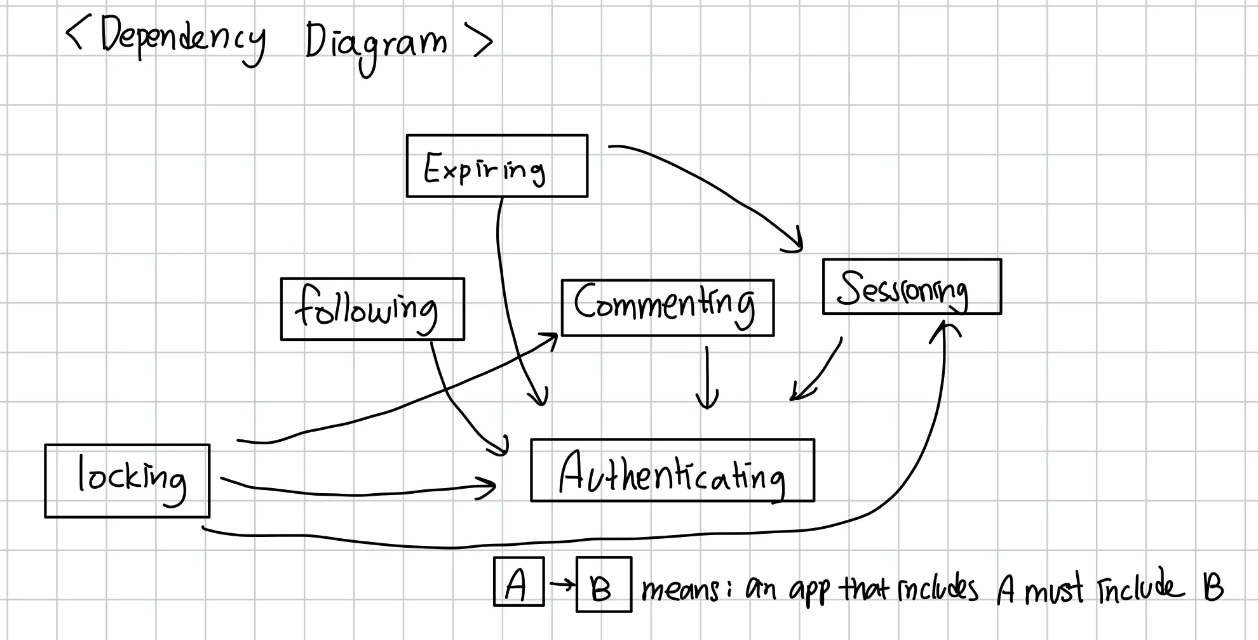 <Dependency Diagram>
Expiring
Sessioning
following
Commenting
locking
Authenticating
A → B means: an app that includes A must include B